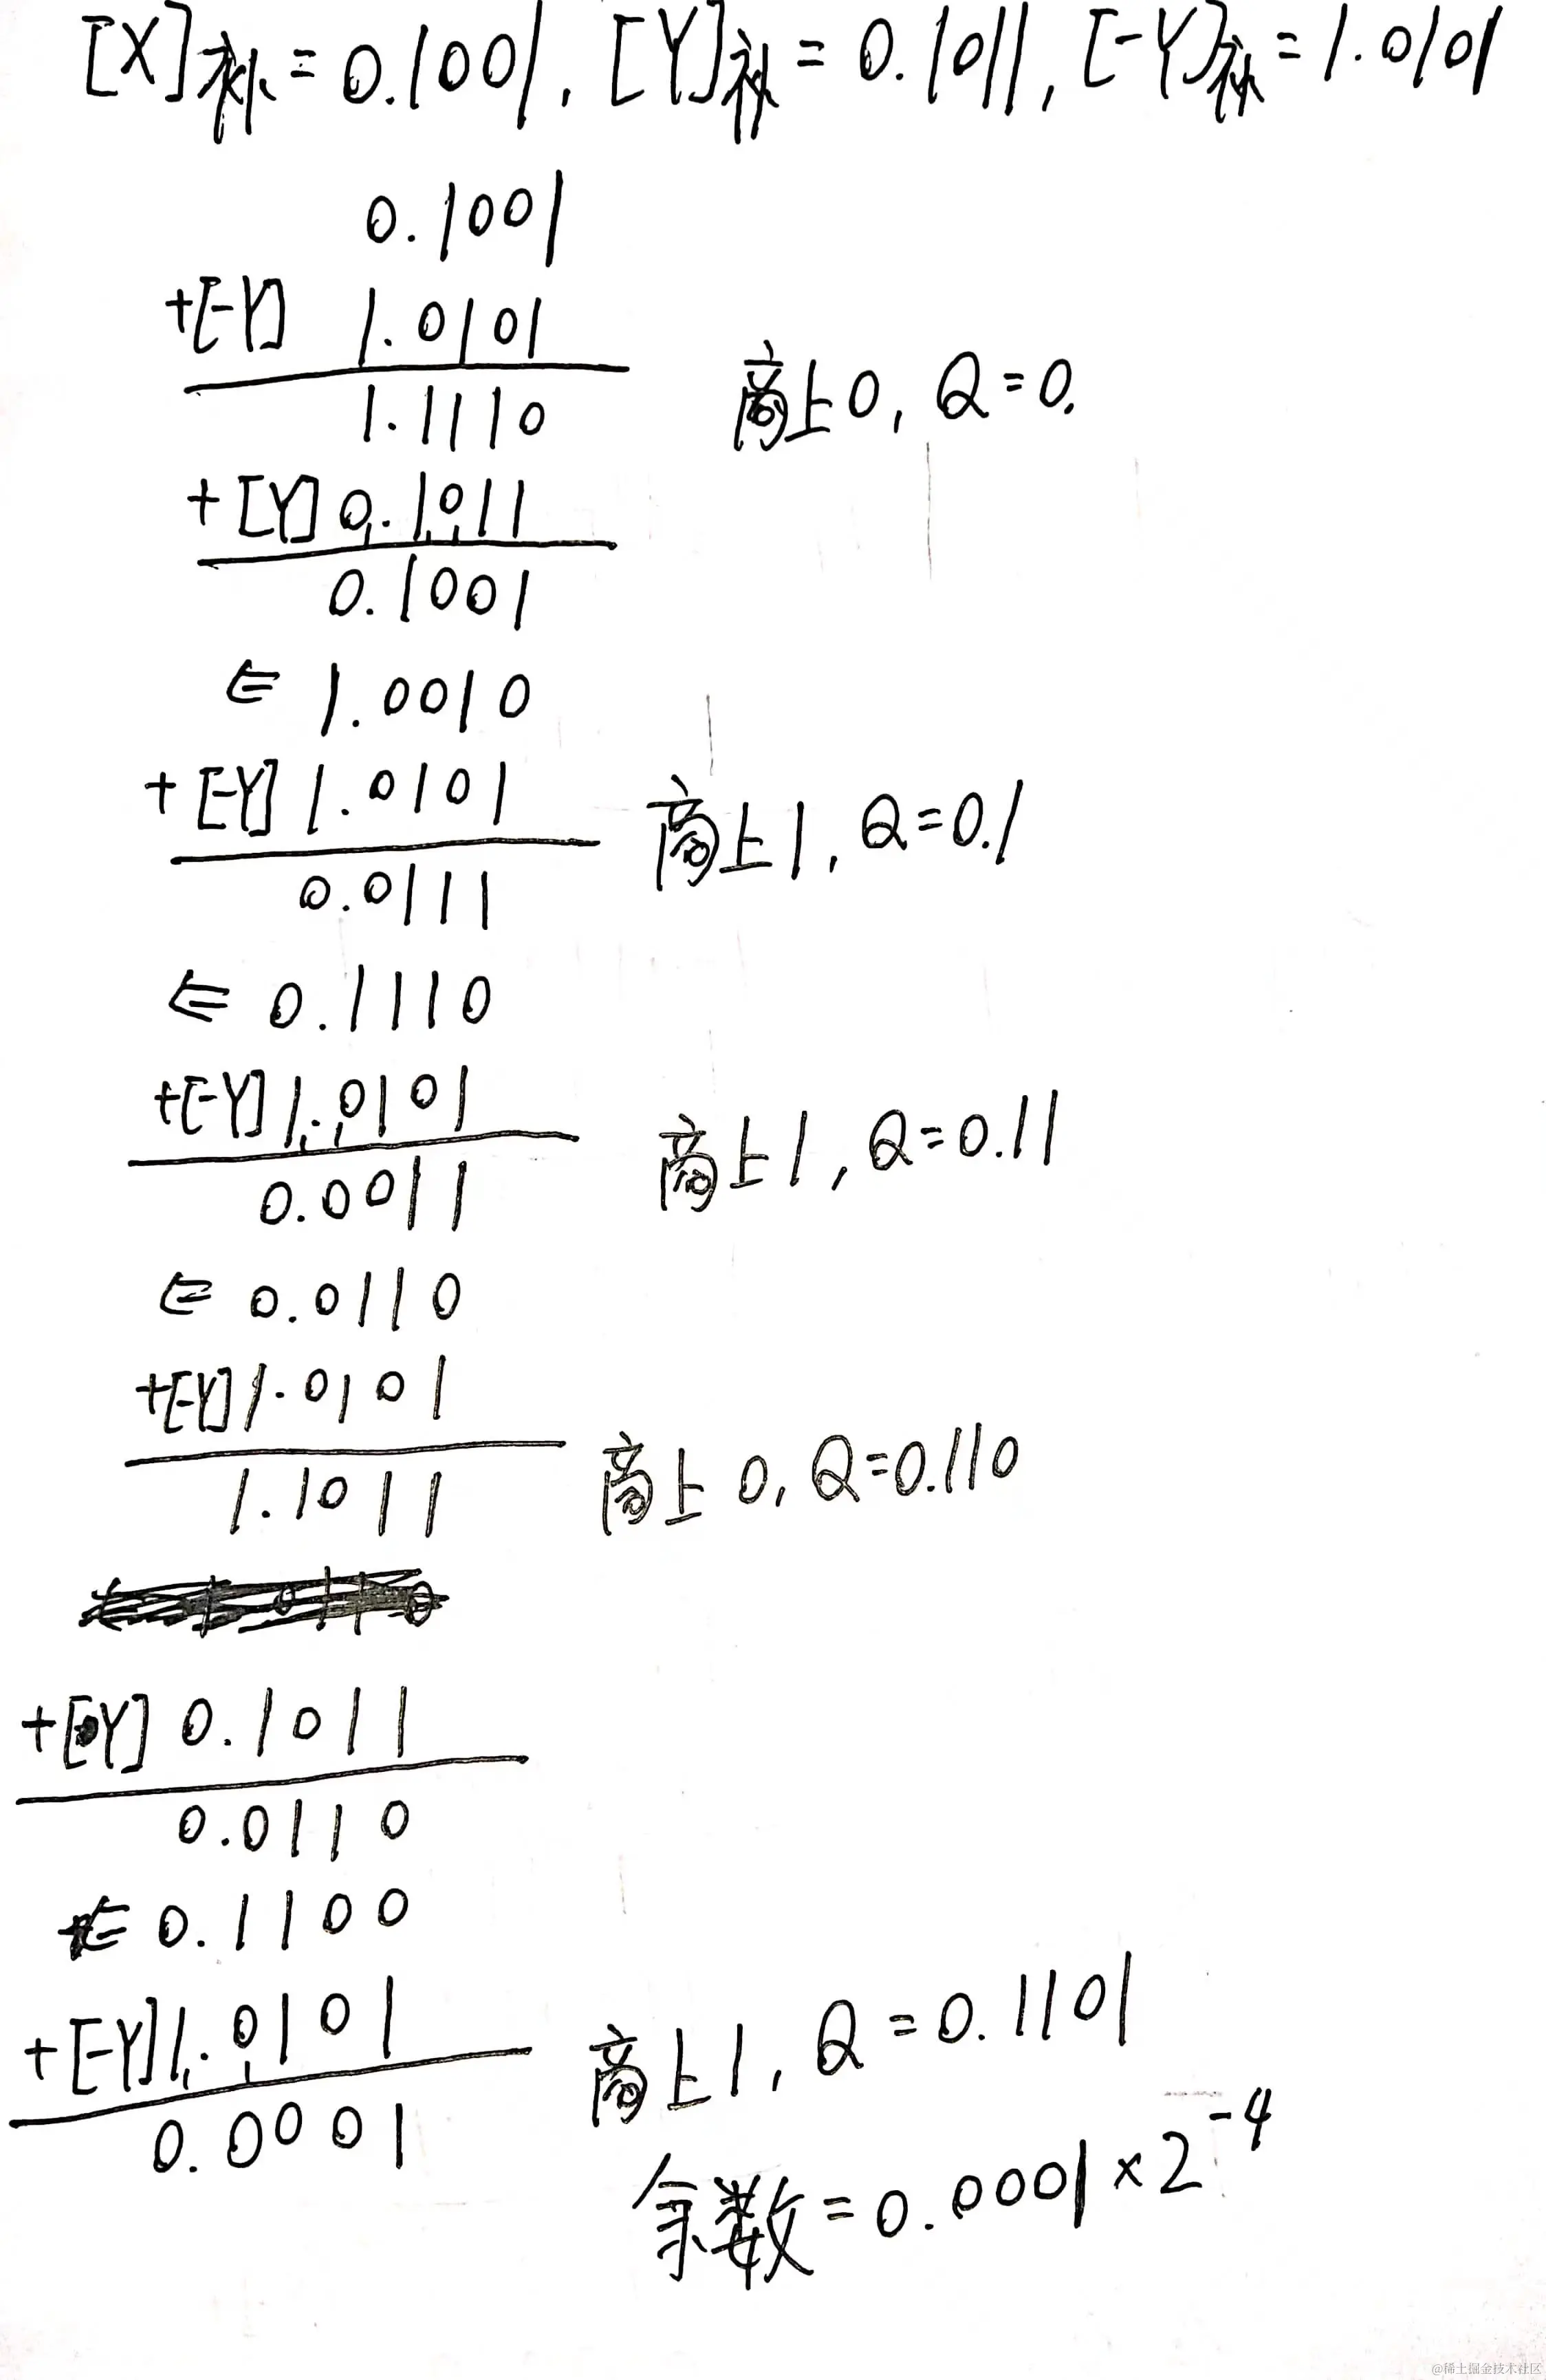 [X]补=0.1001, [Y]补=0.1011, [-Y]补=1.0101
0.1001
+[-Y] 1.0101
1.1110 商上0, Q=0.
+[Y] 0.1011
0.1001
⇐ 1.0010
+[-Y] 1.0101 商上1, Q=0.1
0.0111
⇐ 0.1110
+[-Y] 1.0101 商上1, Q=0.11
0.0011
⇐ 0.0110
+[-Y] 1.0101
1.1011 商上0, Q=0.110
+[Y] 0.1011
0.0110
⇐ 0.1100
+[-Y] 1.0101 商上1, Q=0.1101
0.0001
余数=0.0001×2⁻⁴
@稀土掘金技术社区